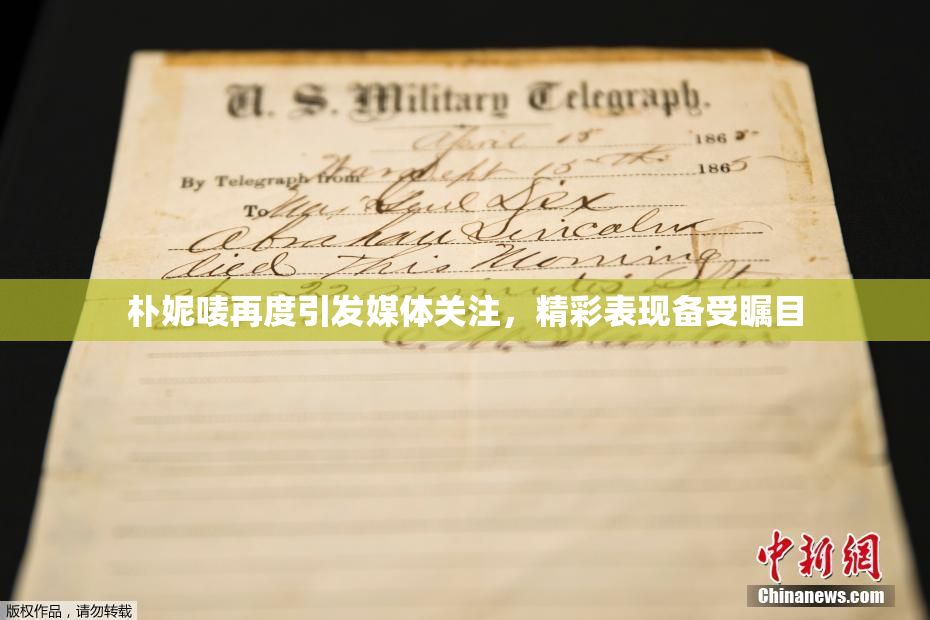 U. S. Military Telegraph.
April 15 1865
By Telegraph from War Dept 15th 1865
To Maj Genl Dix
Abraham Lincoln
died This Morning
at 22 minutes after
朴妮唛再度引发媒体关注，精彩表现备受瞩目
中新網
Chinanews.com
版权作品，请勿转载